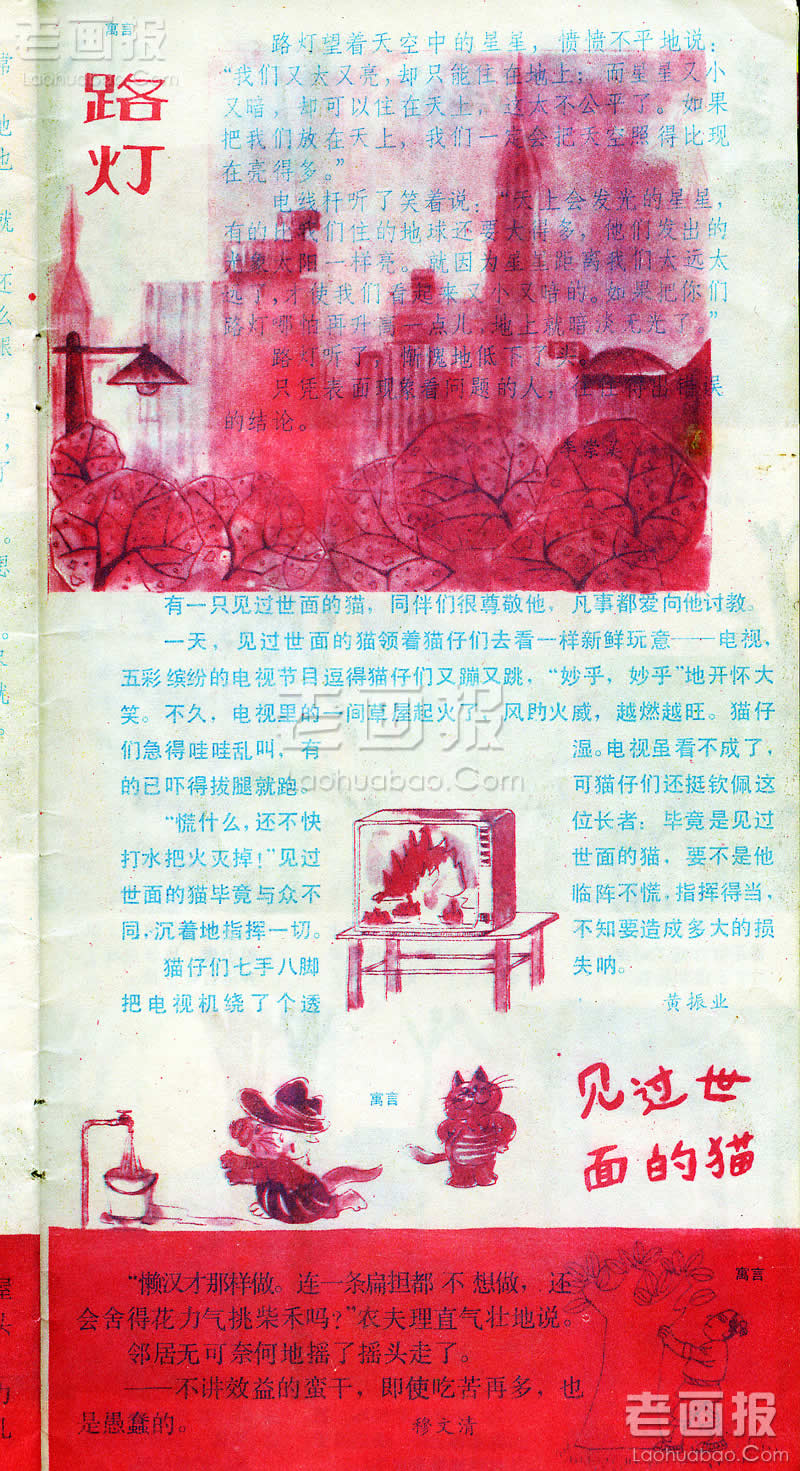 寓言
路灯
路灯望着天空中的星星，愤愤不平地说：
“我们又大又亮，却只能住在地上；而星星又小
又暗，却可以住在天上，这太不公平了。如果
把我们放在天上，我们一定会把天空照得比现
在亮得多。”
电线杆听了笑着说：“天上会发光的星星，
有的比我们住的地球还要大得多，他们发出的
光象太阳一样亮。就因为星星距离我们太远太
远了，才使我们看起来又小又暗的。如果把你们
路灯哪怕再升高一点儿，地上就暗淡无光了。”
路灯听了，惭愧地低下了头。
只凭表面现象看问题的人，往往得出错误
的结论。
有一只见过世面的猫，同伴们很尊敬他，凡事都爱向他讨教。
一天，见过世面的猫领着猫仔们去看一样新鲜玩意——电视，
五彩缤纷的电视节目逗得猫仔们又蹦又跳，“妙乎，妙乎”地开怀大
笑。不久，电视里的一间草屋起火了，风助火威，越燃越旺。猫仔
们急得哇哇乱叫，有
的已吓得拔腿就跑。
“慌什么，还不快
打水把火灭掉！”见过
世面的猫毕竟与众不
同，沉着地指挥一切。
猫仔们七手八脚
把电视机绕了个透
湿。电视虽看不成了，
可猫仔们还挺钦佩这
位长者：毕竟是见过
世面的猫，要不是他
临阵不慌，指挥得当，
不知要造成多大的损
失呐。
黄振业
寓言
见过世
面的猫
寓言
“懒汉才那样做。连一条扁担都不想做，还
会舍得花力气挑柴禾吗？”农夫理直气壮地说。
邻居无可奈何地摇了摇头走了。
——不讲效益的蛮干，即使吃苦再多，也
是愚蠢的。
穆文清
老画报
Laohuabao.Com
老画报
Laohuabao.Com
老画报
Laohuabao.Com